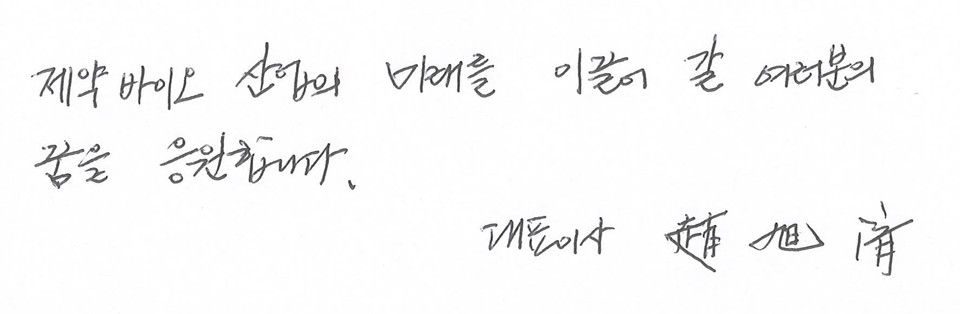 제약 바이오 산업의 미래를 이끌어 갈 여러분의
꿈을 응원합니다.
대표이사 趙 旭 濟